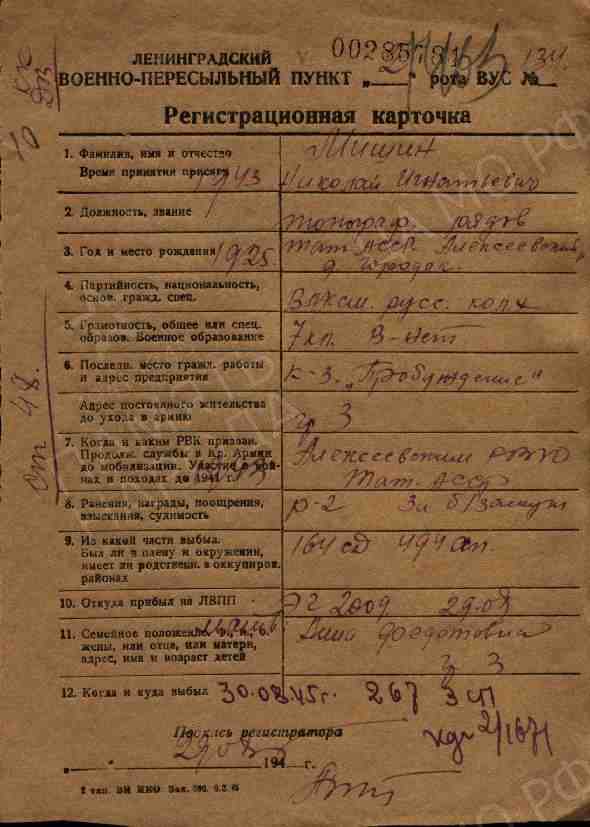 ЛЕНИНГРАДСКИЙ
ВОЕННО-ПЕРЕСЫЛЬНЫЙ ПУНКТ „ “ рота ВУС № 134
Регистрационная карточка
1. Фамилия, имя и отчество Мишин
Время принятия присяги 1943 Николай Игнатьевич
2. Должность, звание топограф. рядов
3. Год и место рождения 1925 Тат. АССР Алексеевский
д. Городок.
4. Партийность, национальность, основ. гражд. спец. ВЛКСМ. русс. колх
5. Грамотность, общее или спец. образов. Военное образование 7 кл. В-нет
6. Последн. место гражд. работы и адрес предприятия к-з. „Пробуждение“
Адрес постоянного жительства до ухода в армию 3
7. Когда и каким РВК призван. Алексеевским РВК
Продолж. службы в Кр. Армии до мобилизации. Участие в войнах и походах до 1941 г. Тат. АССР
8. Ранения, награды, поощрения, взыскания, судимость р-2 За б/заслуги
9. Из какой части выбыл. 164 сд 494 ап.
Был ли в плену и окружении, имеет ли родствен. в оккупиров. районах
10. Откуда прибыл на ЛВПП ЭГ 2009 29.08
11. Семейное положение. Ф., и., о. жены, или отца, или матери, адрес, имя и возраст детей Федотовна
3
12. Когда и куда выбыл 30.08.45г. 267 ЗСП
2/1671
Подпись регистратора
29.08
„ “ 194 г.
от 48.